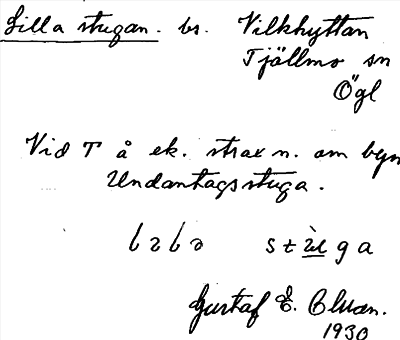 Lilla stugan. bs. Vilkhyttan
Tjällmo sn
Ögl
Vid T å ek. strax n. om byn
Undantagsstuga.
stù̲ga
Gustaf E.
1930